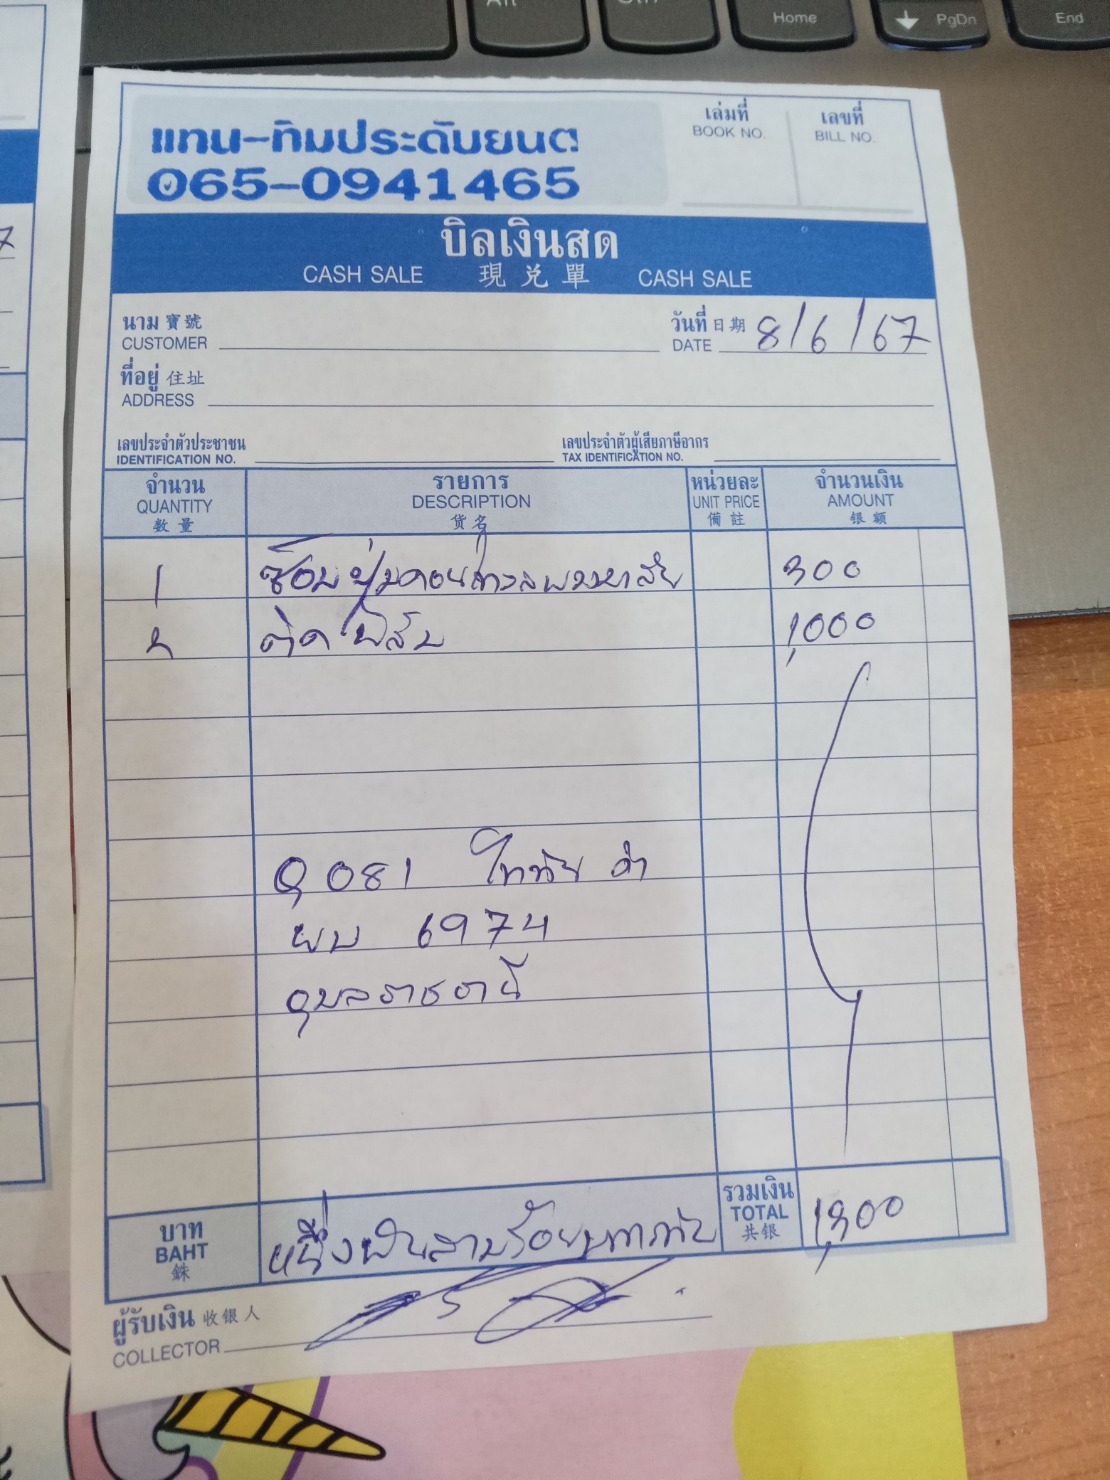 Home
PgDn
End
เล่มที่
BOOK NO.
เลขที่
BILL NO.
แทน-ทิมประดับยนต์
065-0941465
บิลเงินสด
CASH SALE 現兌單 CASH SALE
นาม 寶號
CUSTOMER
วันที่ 日期
DATE 8/6/67
ที่อยู่ 住址
ADDRESS
เลขประจำตัวประชาชน
IDENTIFICATION NO.
เลขประจำตัวผู้เสียภาษีอากร
TAX IDENTIFICATION NO.
จำนวน
QUANTITY
數量
รายการ
DESCRIPTION
貨名
หน่วยละ
UNIT PRICE
備註
จำนวนเงิน
AMOUNT
银額
1 ซ่อมปุ่มคอนโทรลพวงมาลัย 300
2 ติดฟิล์ม 1,000
Q 081
ผบ 6974
อุบลราชธานี
บาท
BAHT
銖
หนึ่งพันสามร้อยบาทถ้วน
รวมเงิน
TOTAL
共银
1,300
ผู้รับเงิน 收银人
COLLECTOR